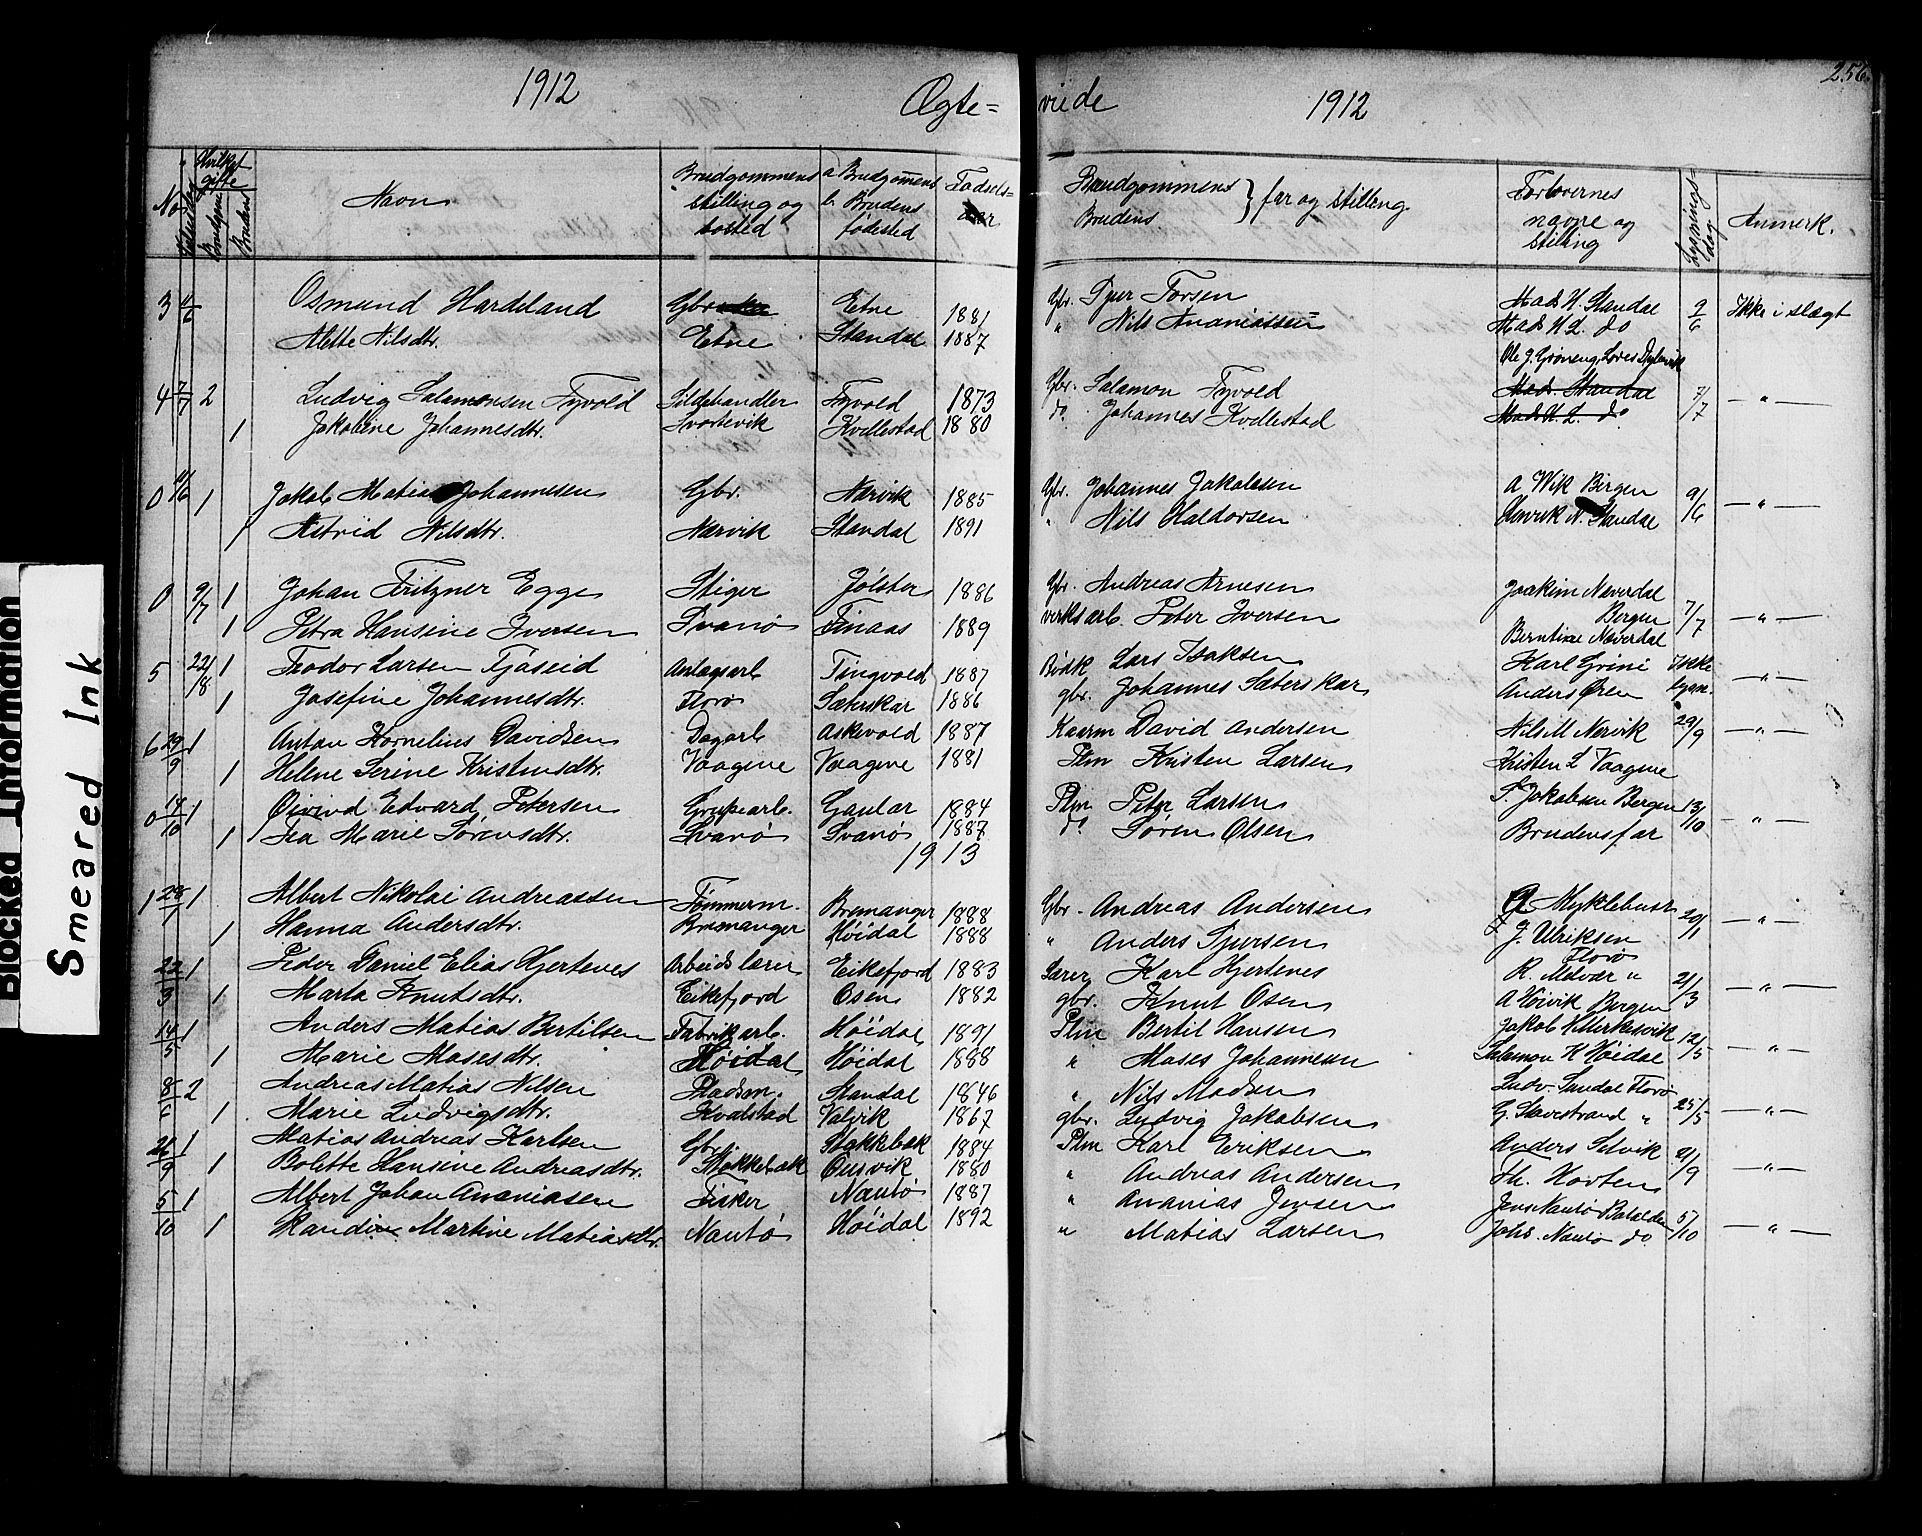 256.
1912 Ægte= viede 1912
No Hvilket gifte Brudgom Bruden Navn Brudgommens stilling og bosted a Brudgommens b. Brudens fødested Fødsels- aar Brudgommens Brudens } far og stilling. Forlovernes navne og stilling Lysningsdag Anmerk.
3 11/6 Osmund Hardeland Gbr. Etne 1881 Gbr. Sjur Torsen Mads H. Standal 2/6 Ikke i slægt
Alette Nilsdtr. Etne Standal 1887 " Nils Ananiassen Mads H. L. do
Ole J. Grøneng, Søren Dyrlevik
4 7/7 2 Ludvig Salamonsen Tyvold Sildehandler Tyvold 1873 Gbr. Salamon Tyvold Mads. Standal 7/7 — " —
1 Jakobine Johannesdtr. Svortevik Kvellestad 1880 do. Johannes Kvellestad Mads H. L. do
0 11/6 1 Jakob Matias Johannesen Gbr. Nærvik 1885 Gbr. Johannes Jakobsen A Wik Bergen 9/6 — " —
1 Astrid Nilsdtr. Nærvik Standal 1891 " Nils Haldorsen Henrik N. Standal
0 9/7 1 Johan Fritzner Egge Stiger Jølster 1886 Gbr. Andreas Arnesen Joakim Næverdal Bergen 7/7 — " —
1 Petra Hansine Iversen Svanø Finaas 1889 verksarb. Peter Iversen Berntine Næverdal
5 22/8 1 Teodor Larsen Tjøseid Anlagsarb Tingvold 1887 Bødk Lars Isaksen Karl Grini Ikke lysn. — " —
1 Josefine Johannesdtr. Florø Sæterskar 1886 gbr. Johannes Sæterskar Anders Øren
6 29/9 1 Anton Kornelius Davidsen Dagarb Askevold 1887 Kaarm David Andersen Nils M Nervik 29/9 — " —
1 Helene Serine Kristensdtr. Vaagene Vaagene 1881 Plm Kristen Larsen Kristen L Vaagene
0 14/10 1 Øivind Edvard Petersen Grupearb. Gaular 1884 Plm Peter Larsen S. Jakobsen Bergen 13/10 — " —
1 Tea Marie Sørensdtr. Svanø Svanø 1887 do Søren Olsen Brudens far
1913
1 28/1 1 Albert Nikolai Andreassen Tømmerm. Bremanger 1888 Gbr. Andreas Andersen Myklebust 20/1 — " —
1 Hanna Andersdtr. Bremanger Høidal 1888 " Anders Sjursen J. Ulriksen Florø
22/3 1 Peder Daniel Elias Hjertenes Arbeidslærer Eikefjord 1883 Lærer Karl Hjertenes R. Melvær " 21/3 — " —
1 Marta Knutsdtr. Eikefjord Osen 1882 gbr. Knut Osen A Høivik Bergen
14/5 1 Anders Matias Bertilsen Fabrikarb. Høidal 1891 Plm Bertil Hansen Jakob K Merkesvik 12/5 — " —
1 Marie Mosesdtr. Høidal Høidal 1888 " Moses Johannesen Salamon K Høidal
8/6 2 Andreas Matias Nilsen Pladsm. Standal 1846 " Nils Madsen Ludv. Sandal Florø
1 Marie Ludvigsdtr. Kvalstad Valvik 1867 gbr. Ludvig Jakobsen G. Savestrand " 25/5 — " —
26/9 1 Matias Andreas Karlsen Gbr. Stokkebæk 1884 Plm Karl Eriksen Anders Selvik 21/9 — " —
1 Bolette Hansine Andreasdtr. Stokkebæk Ousvik 1880 " Andreas Andersen Th. Horten
5/10 1 Albert Johan Ananiasen Fisker Nautø 1887 " Ananias Jensen Jens Nautø Batalden 5/10 — " —
1 Randine Martine Matiasdtr. Nautø Høidal 1892 " Matias Larsen Johs. Nautø do
Blocked Information
Smeared Ink